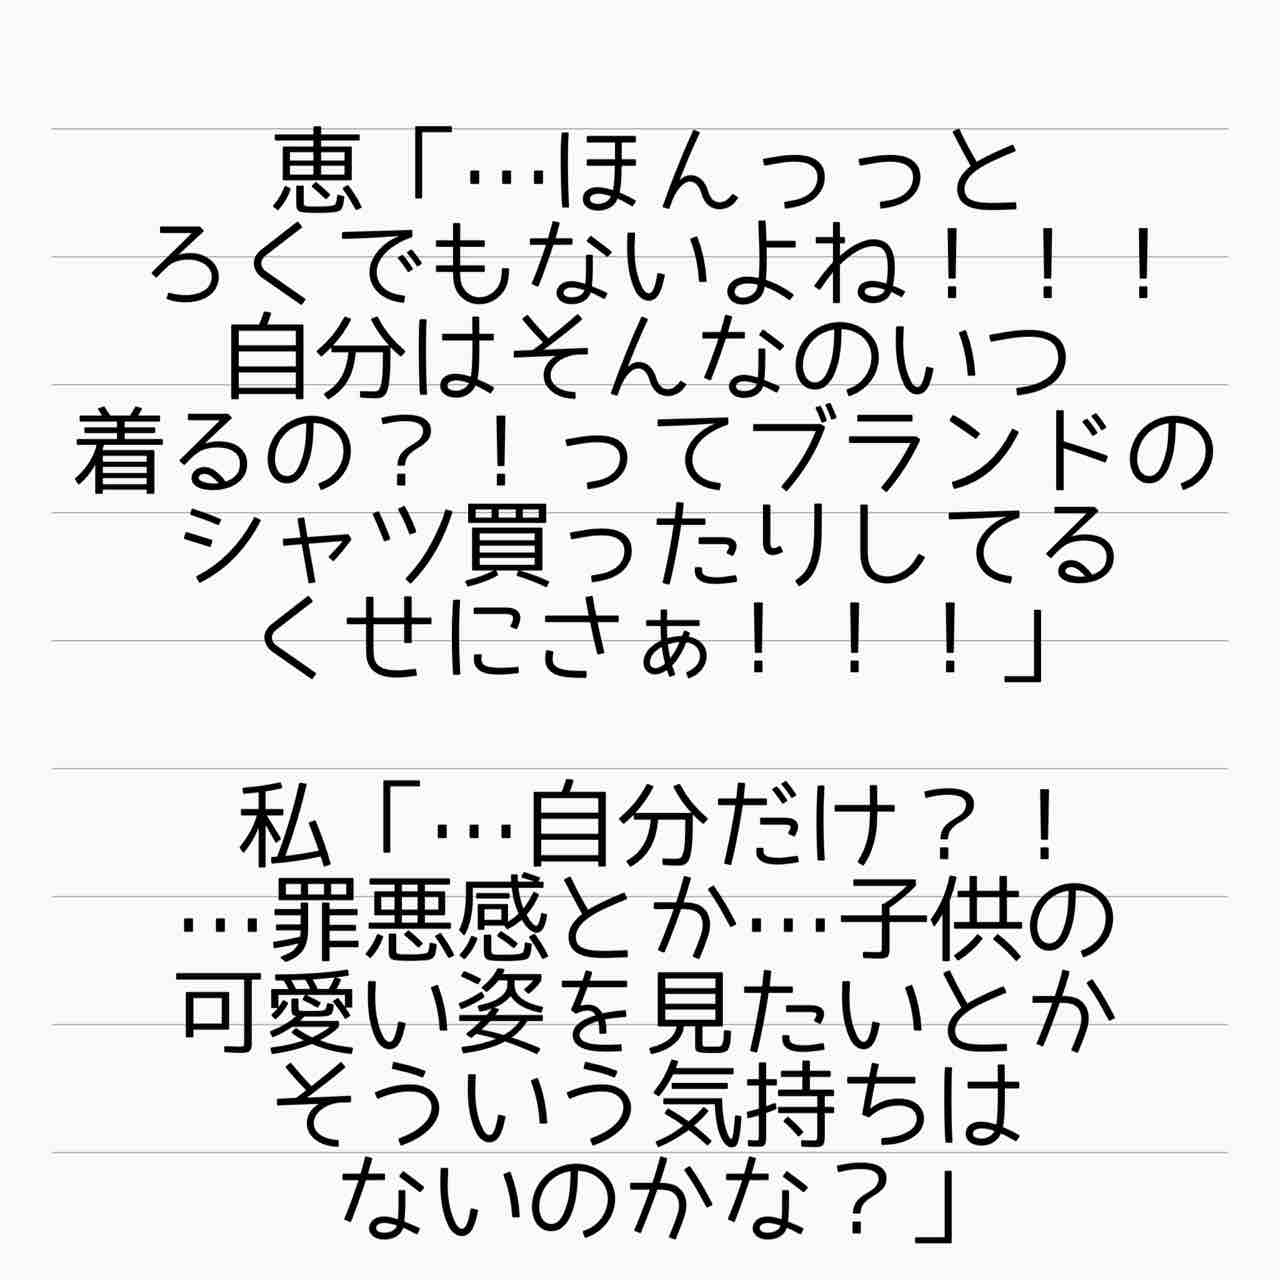 恵「…ほんっっと
ろくでもないよね！！！
自分はそんなのいつ
着るの？！ってブランドの
シャツ買ったりしてる
くせにさぁ！！！」
私「…自分だけ？！
…罪悪感とか…子供の
可愛い姿を見たいとか
そういう気持ちは
ないのかな？」